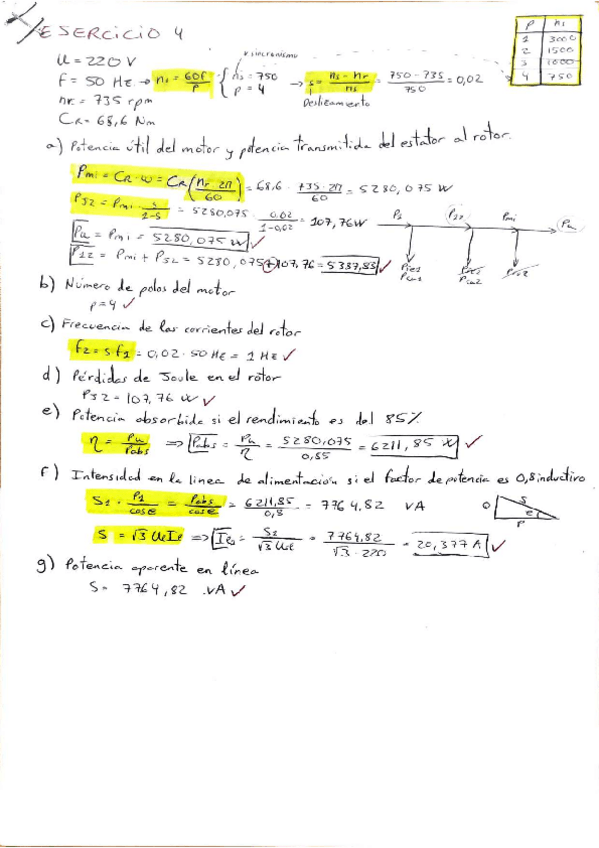 EJERCICIO 4
U = 220 V
f = 50 Hz → n1 = 60f/p { n1 = 750 p = 4 → s = (n1 - nr)/n1 = (750 - 735)/750 = 0,02
v sincronismo
Deslizamiento
nr = 735 rpm
CR = 68,6 Nm
P n1
1 3000
2 1500
3 1000
4 750
a) Potencia útil del motor y potencia transmitida del estator al rotor.
Pmi = CR · ω = CR (nr · 2π/60) = 68,6 · 735 · 2π/60 = 5280,075 W
PJ2 = Pmi · s/(1-s) = 5280,075 · 0,02/(1-0,02) = 107,76 W
Pu = Pmi = 5280,075 W ✓
P12 = Pmi + PJ2 = 5280,075 + 107,76 = 5387,83 ✓
P1 P12 Pmi Pu
b) Número de polos del motor
p = 4 ✓
c) Frecuencia de las corrientes del rotor
f2 = s · f1 = 0,02 · 50 Hz = 1 Hz ✓
d) Pérdidas de Joule en el rotor
PJ2 = 107,76 W ✓
e) Potencia absorbida si el rendimiento es del 85%
η = Pu/Pabs ⇒ Pabs = Pu/η = 5280,075/0,85 = 6211,85 W ✓
f) Intensidad en la linea de alimentación si el factor de potencia es 0,8 inductivo
S1 · P1/cosφ = Pabs/cosφ = 6211,85/0,8 = 7764,82 VA
S = √3 Ul Il ⇒ Il = S1/(√3 Ul) = 7764,82/(√3 · 220) = 20,377 A ✓
Q S φ P
g) Potencia aparente en línea
S = 7764,82 VA ✓